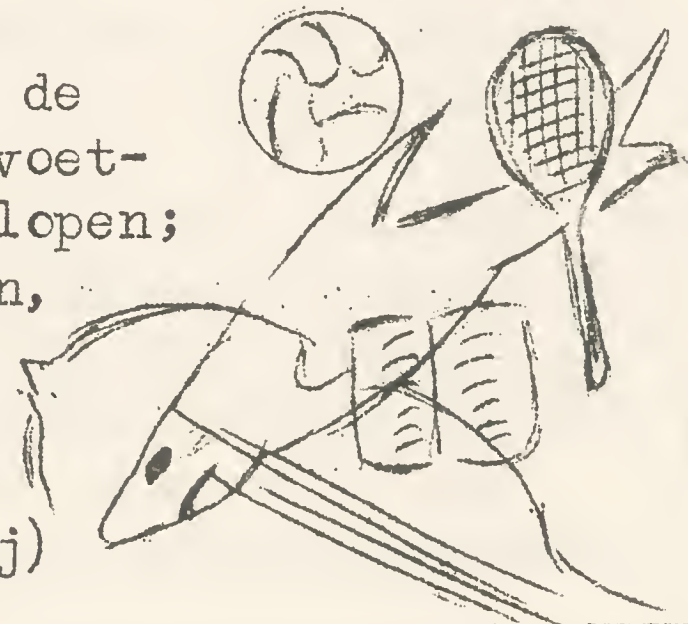 de
voet-
lopen;
n,
j)